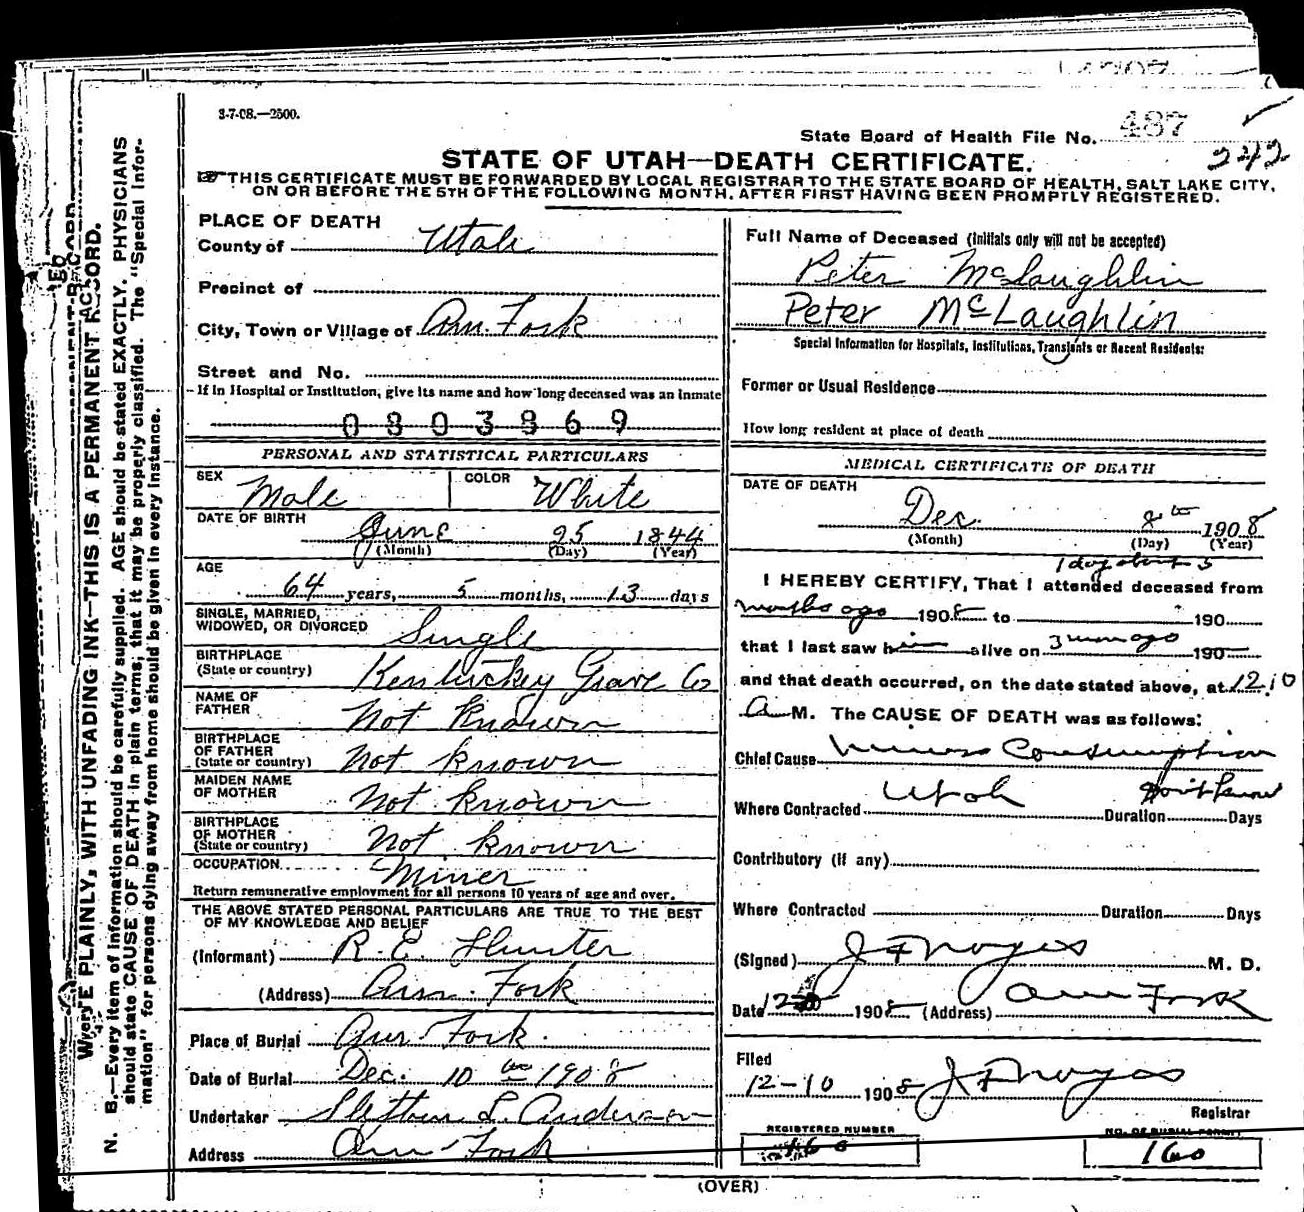 3-7-08.—2500.
State Board of Health File No. 487
242
STATE OF UTAH—DEATH CERTIFICATE.
THIS CERTIFICATE MUST BE FORWARDED BY LOCAL REGISTRAR TO THE STATE BOARD OF HEALTH, SALT LAKE CITY,
ON OR BEFORE THE 5TH OF THE FOLLOWING MONTH, AFTER FIRST HAVING BEEN PROMPTLY REGISTERED.
WRITE PLAINLY, WITH UNFADING INK—THIS IS A PERMANENT RECORD.
N. B.—Every item of information should be carefully supplied. AGE should be stated EXACTLY. PHYSICIANS
should state CAUSE OF DEATH in plain terms, that it may be properly classified. The "Special Infor-
mation" for persons dying away from home should be given in every instance.
PLACE OF DEATH
County of Utah
Precinct of
City, Town or Village of Am. Fork
Street and No.
If in Hospital or Institution, give its name and how long deceased was an inmate
0803869
PERSONAL AND STATISTICAL PARTICULARS
SEX Male COLOR White
DATE OF BIRTH
June 25 1844
(Month) (Day) (Year)
AGE
64 years, 5 months, 13 days
SINGLE, MARRIED,
WIDOWED, OR DIVORCED Single
BIRTHPLACE
(State or country) Kentuckey Grave Co
NAME OF
FATHER Not known
BIRTHPLACE
OF FATHER
(State or country) Not known
MAIDEN NAME
OF MOTHER Not known
BIRTHPLACE
OF MOTHER
(State or country) Not known
OCCUPATION Miner
Return remunerative employment for all persons 10 years of age and over.
THE ABOVE STATED PERSONAL PARTICULARS ARE TRUE TO THE BEST
OF MY KNOWLEDGE AND BELIEF
(Informant) R. E. Hunter
(Address) Am. Fork
Place of Burial Am Fork.
Date of Burial Dec. 10 th 1908
Undertaker L. Anderson
Address Am Fork
Full Name of Deceased (Initials only will not be accepted)
Peter McLaughlin
Peter McLaughlin
Special Information for Hospitals, Institutions, Transients or Recent Residents:
Former or Usual Residence
How long resident at place of death
MEDICAL CERTIFICATE OF DEATH
DATE OF DEATH
Dec. 8th 1908
(Month) (Day) (Year)
1 day about 5
I HEREBY CERTIFY, That I attended deceased from
months ago 1908 to 190
that I last saw him alive on 3 mon ago 190
and that death occurred, on the date stated above, at 12:10
A M. The CAUSE OF DEATH was as follows:
Chief Cause Miners Consumption
Where Contracted Utah Duration Don't know Days
Contributory (if any)
Where Contracted Duration Days
(Signed) J F Noyes M. D.
Date 12 1908 (Address) Am Fork
Filed
12-10 1908 J F Noyes
Registrar
REGISTERED NUMBER
NO. OF BURIAL PERMIT
160
(OVER)